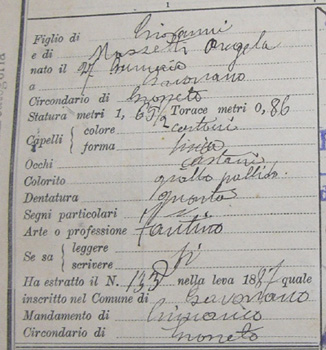 Figlio di Giovanni
e di Massetti Angela
nato il 27 Gennaio
a Gavorrano
Circondario di Grosseto
Statura metri 1, 65 1/2 Torace metri 0, 86
Capelli { colore castani
forma lisci
Occhi castani
Colorito giallo pallido
Dentatura guasta
Segni particolari //
Arte o professione Fantino
Se sa { leggere
scrivere si
Ha estratto il N. 133 nella leva 1887 quale
inscritto nel Comune di Gavorrano
Mandamento di
Circondario di Grosseto